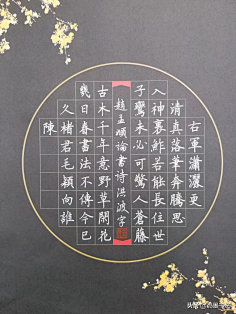 右軍瀟灑更
清真落筆奔騰思
入神裹鮓若能長住世
子鸞未必可驚人蒼藤
趙孟頫論書詩洪波字
古木千年意野草閑花
幾日春書法不傳今已
久楮君毛穎向誰
陳